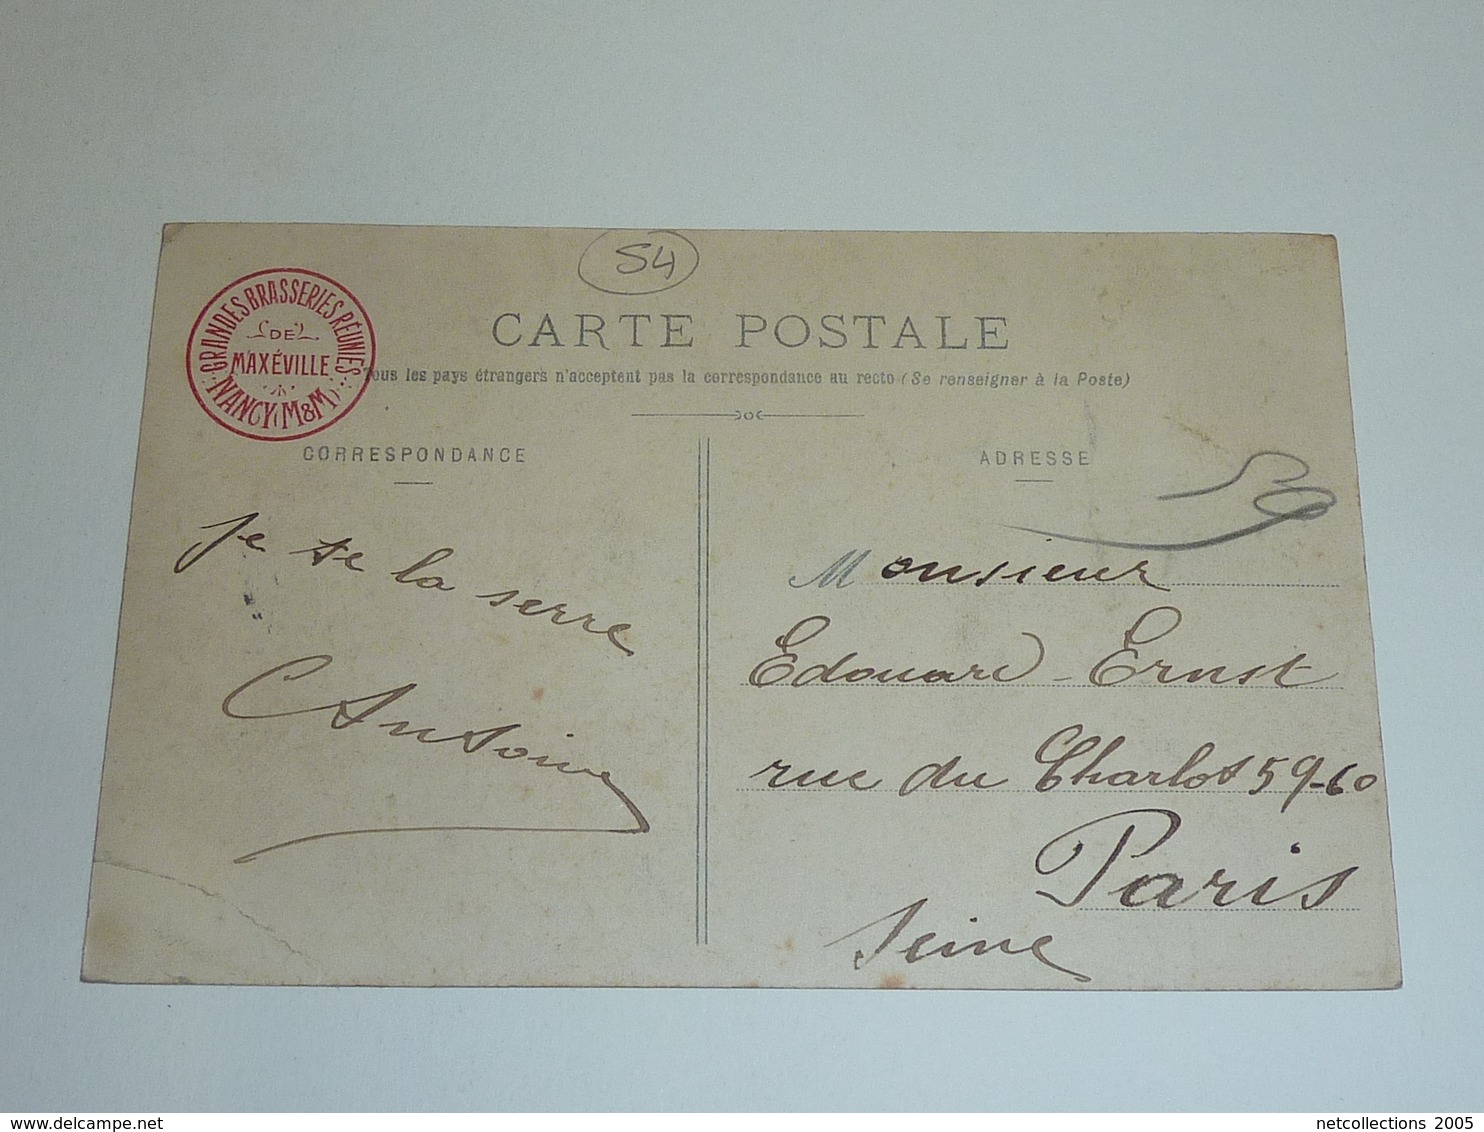 54
GRANDES BRASSERIES RÉUNIES
DE
MAXÉVILLE
NANCY (M&M)
CARTE POSTALE
Tous les pays étrangers n'acceptent pas la correspondance au recto (Se renseigner à la Poste)
CORRESPONDANCE
ADRESSE
Je te la serre
Antoine
Monsieur
Edouard Ernst
rue du Charlot 59-60
Paris
Seine
delcampe.net
netcollections 2005